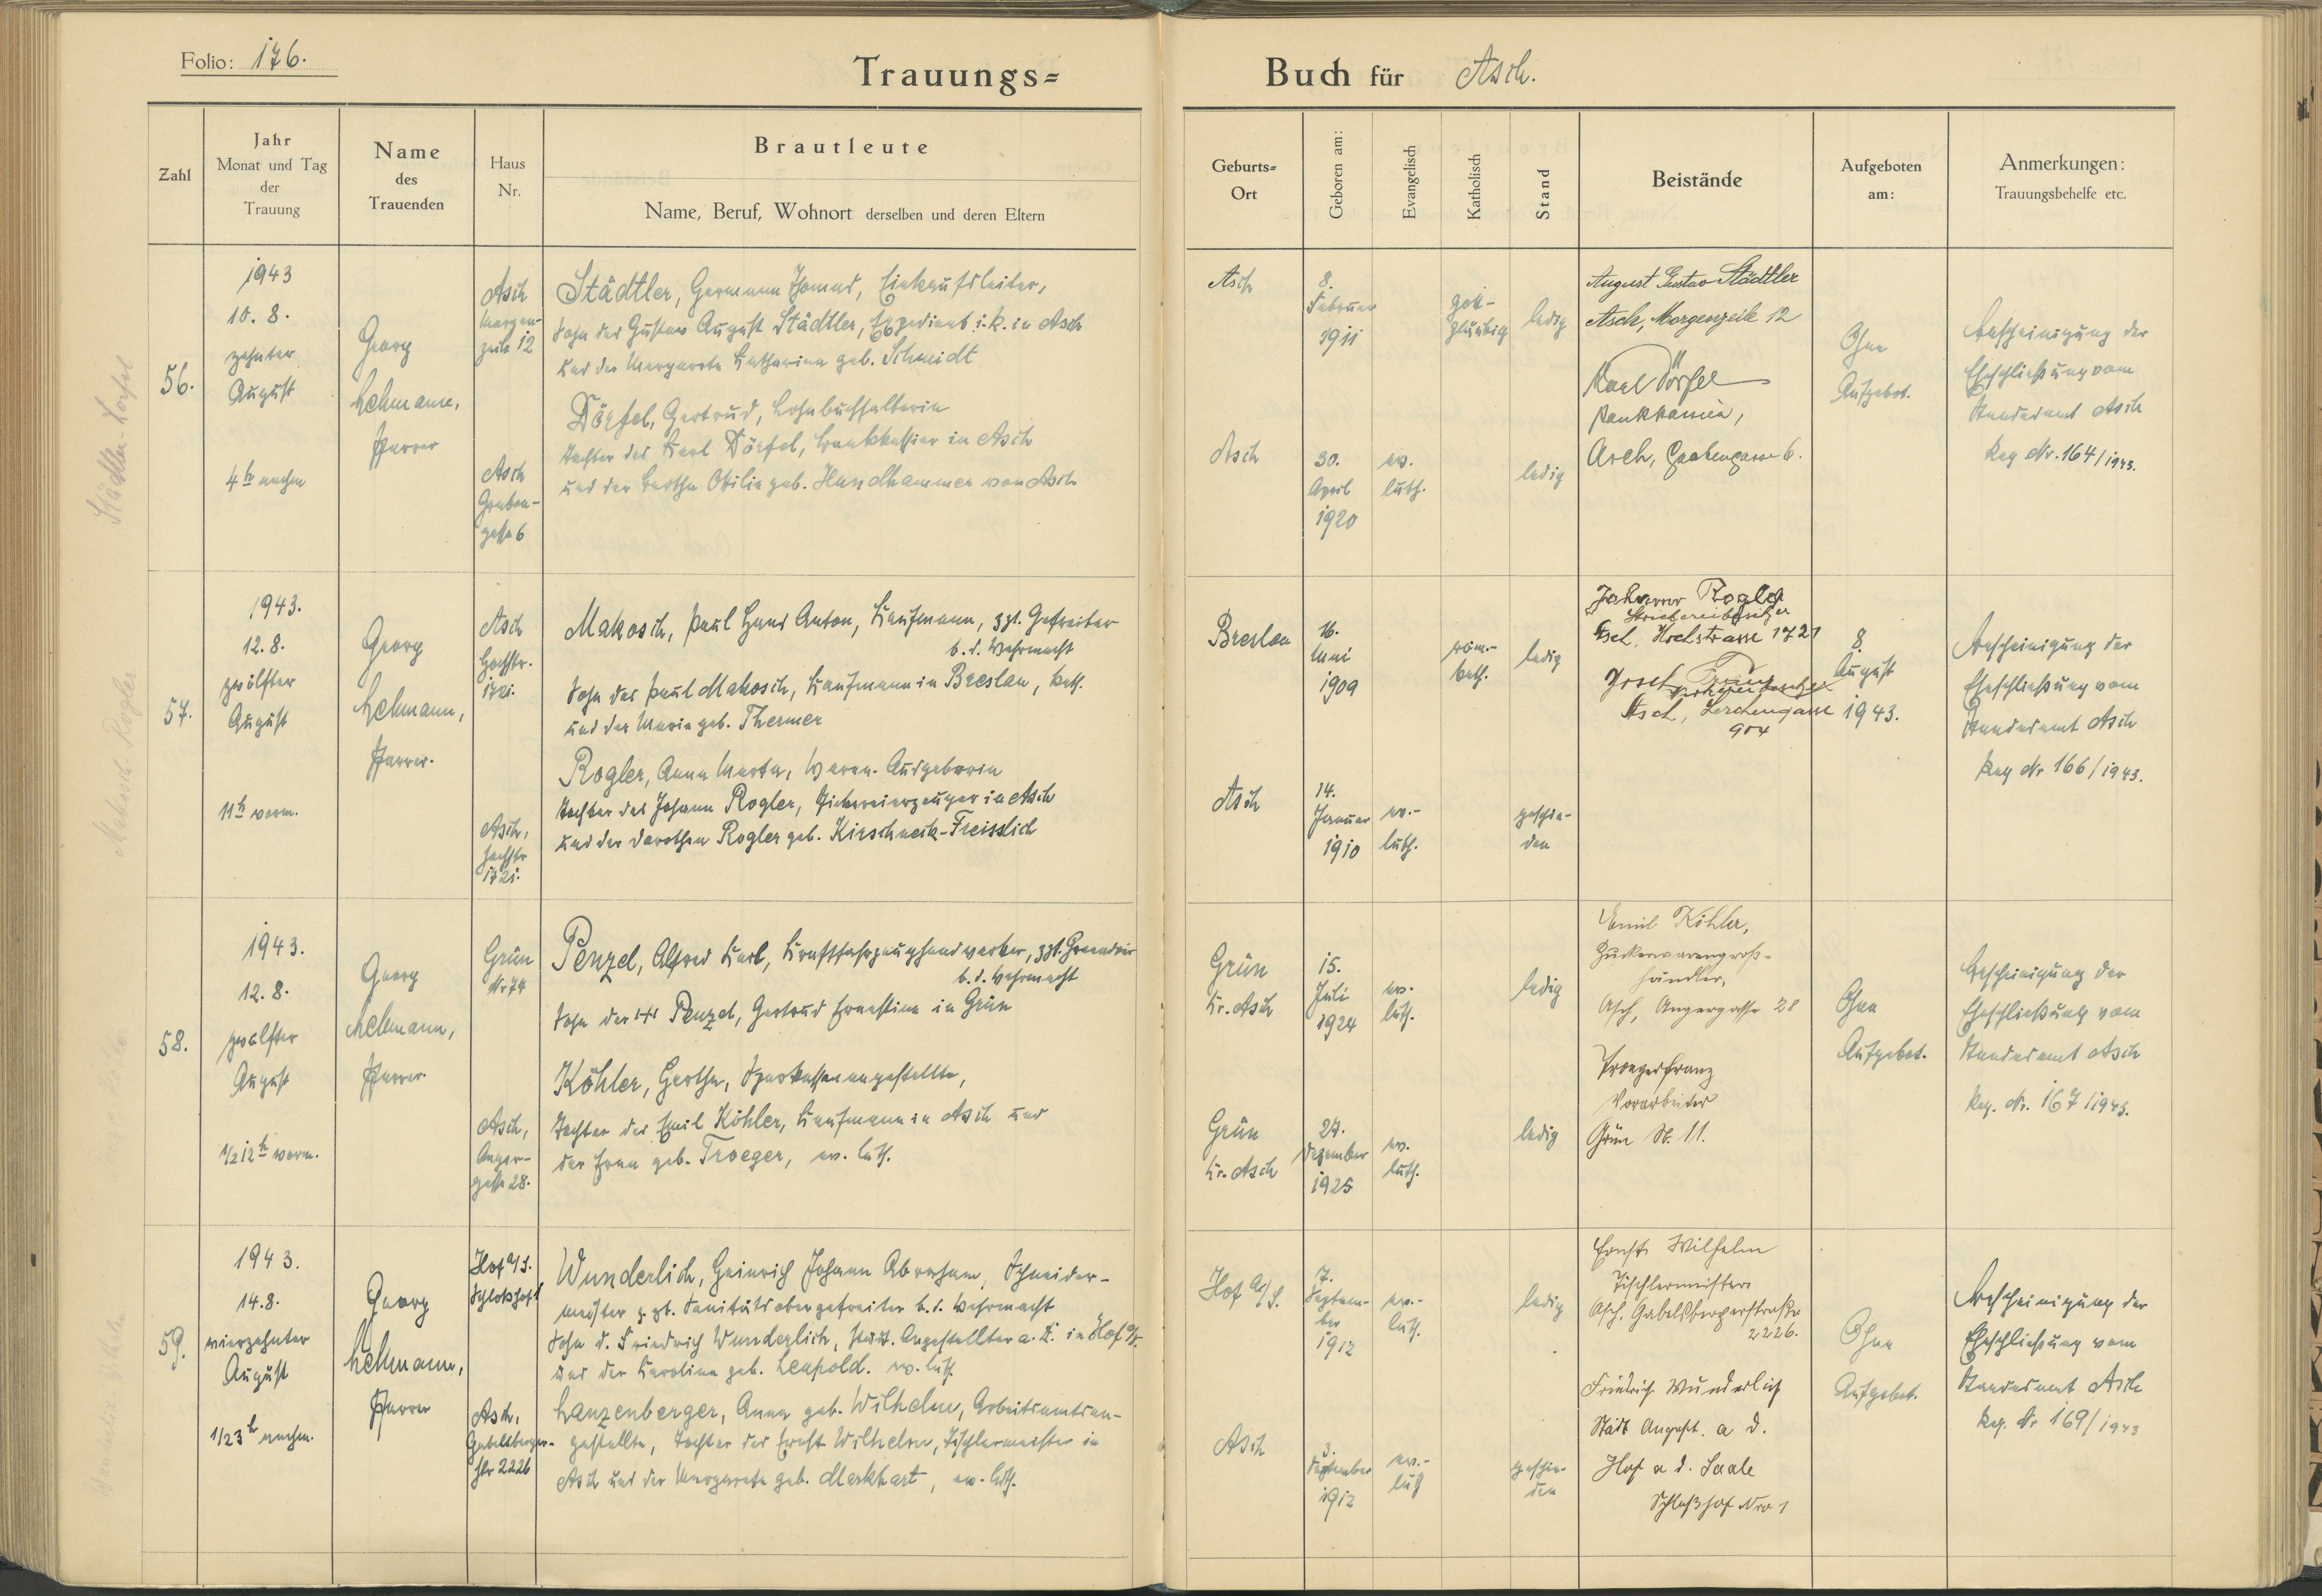 Folio: 176.
Trauungs=
Buch für Asch.
Zahl
Jahr
Monat und Tag
der
Trauung
Name
des
Trauenden
Haus
Nr.
Brautleute
Name, Beruf, Wohnort derselben und deren Eltern
Geburts=
Ort
Geboren am:
Evangelisch
Katholisch
Stand
Beistände
Aufgeboten
am:
Anmerkungen:
Trauungsbehelfe etc.
56.
1943
10. 8.
zehnter
August
4 h nachm
Georg
Lehmann,
Pfarrer
Asch
Morgen-
zeile 12
Städtler, Hermann Thomas, Einkaufsleiter,
Sohn des Gustav August Städtler, Expedient i. R. in Asch
und der Margareta Katharina geb. Schmidt
Asch
Graben-
gasse 6
Dörfel, Gertrud, Lohnbuchhalterin
Tochter des Karl Dörfel, Bankkassier in Asch
und der Bertha Otilie geb. Handhammer von Asch
Asch
8.
Februar
1911
gott-
gläubig
ledig
Asch
30.
April
1920
ev.
luth.
ledig
August Gustav Städtler
Asch, Morgenzeile 12
Karl Dörfel
Bankkassier,
Asch, Grabengasse 6.
Ohne
Aufgebot.
Bescheinigung der
Eheschließung vom
Standesamt Asch
Reg Nr. 164/1943.
57.
1943.
12. 8.
zwölfter
August
11 h vorm.
Georg
Lehmann,
Pfarrer.
Asch
Hochstr.
1721.
Makosch, Paul Hans Anton, Kaufmann, zzt. Gefreiter
b. d. Wehrmacht
Sohn des Paul Makosch, Kaufmann in Breslau, kath.
und der Maria geb. Thermer
Asch,
Hochstr
1721.
Rogler, Anna Marta, Waren-Ausgeberin
Tochter des Johann Rogler, Stickereierzeuger in Asch
und der Dorothea Rogler geb. Kirschneck-Freisslich
Breslau
16.
Mai
1909
röm.-
kath.
ledig
Asch
14.
Januar
1910
ev.-
luth.
geschie-
den
Johann Rogler
Stickereibesitzer
Asch, Hochstrasse 1721
Josef
Asch, Lerchengasse
904
8.
August
1943.
Bescheinigung der
Eheschließung vom
Standesamt Asch
Reg Nr 166/1943.
58.
1943.
12. 8.
zwölfter
August
1/2 12 h vorm.
Georg
Lehmann,
Pfarrer
Grün
Nr 74
Penzel, Alfred Karl, Kraftfahrzeughandwerker, zzt. Grenadier
b. d. Wehrmacht
Sohn der Penzel, Gertrud Ernestine in Grün
Asch,
Anger-
gasse 28.
Köhler, Hertha, Sparkassenangestellte,
Tochter des Emil Köhler, Kaufmann in Asch und
der Erna geb. Troeger, ev. luth.
Grün
Kr. Asch
15.
Juli
1924
ev.
luth.
ledig
Grün
Kr. Asch
27.
Dezember
1925
ev.
luth.
ledig
Emil Köhler,
Zuckerwarengroß-
händler,
Asch, Angergasse 28
Troeger Franz
Vorarbeiter
Grün Nr. 11.
Ohne
Aufgebot.
Bescheinigung der
Eheschließung vom
Standesamt Asch
Reg. Nr. 167/1943.
59.
1943.
14. 8.
vierzehnter
August
1/2 3 h nachm.
Georg
Lehmann,
Pfarrer
Hof a/S.
Schloßhof 1
Wunderlich, Heinrich Johann Abraham, Schneider-
meister z. zt. Sanitätsobergefreiter b. d. Wehrmacht
Sohn d. Friedrich Wunderlich, Städt. Angestellter a. D. in Hof a/S.
und der Karoline geb. Leupold. ev. luth.
Asch,
Gabelsberger-
str 2226
Lanzenberger, Anna geb. Wilhelm, Arbeitsamtsan-
gestellte, Tochter des Ernst Wilhelm, Tischlermeister in
Asch und der Margareta geb. Merkhart, ev. luth.
Hof a/S.
7.
Septem-
ber
1912
ev.-
luth.
ledig
Asch
3.
September
1912
ev.-
luth
geschie-
den
Ernst Wilhelm
Tischlermeister
Asch, Gabelsbergerstraße
2226.
Friedrich Wunderlich
Städt Angest. a. D.
Hof a d. Saale
Schloßhof Nro 1
Ohne
Aufgebot.
Bescheinigung der
Eheschließung vom
Standesamt Asch
Reg. Nr 169/1943